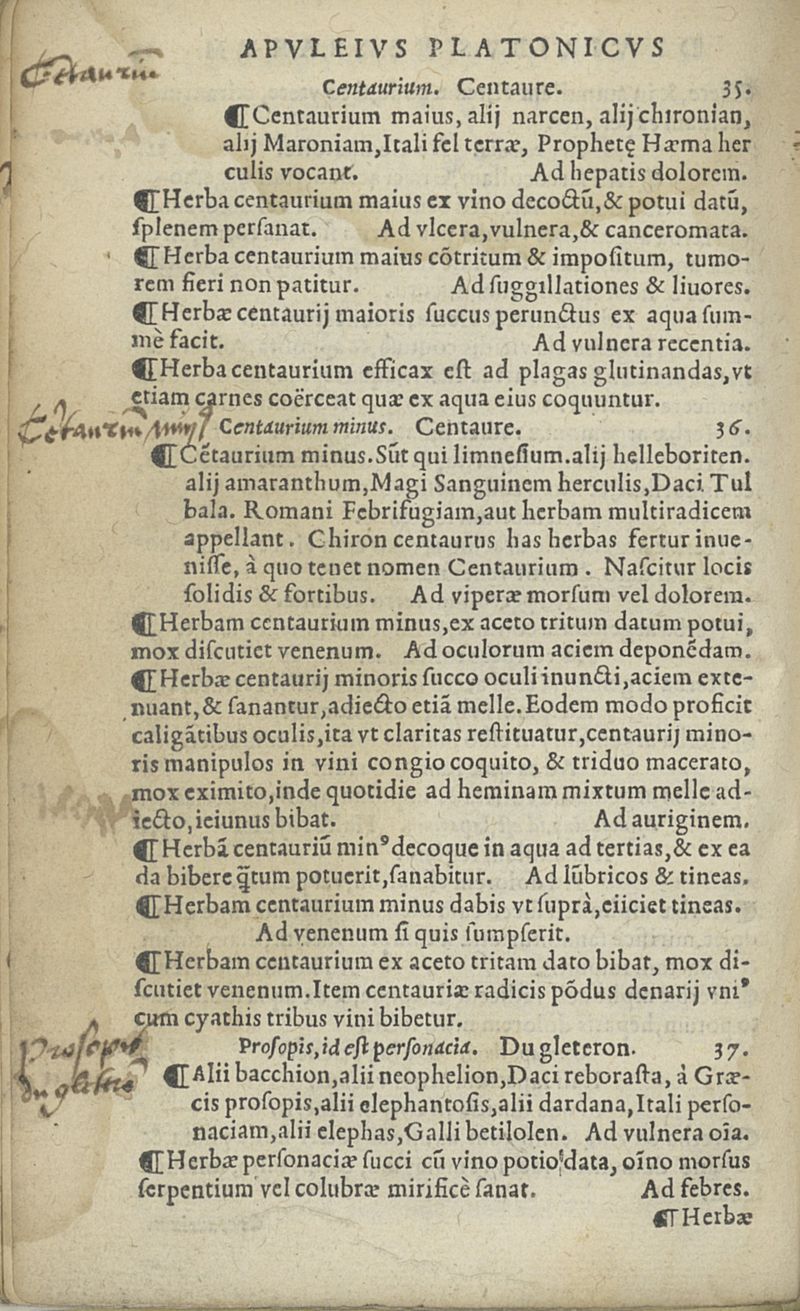 APVLEIVS PLATONICVS
Centaurium. Centaure. 35.
¶Centaurium maius, alij narcen, alij chironian,
alij Maroniam,Itali fel terræ, Prophetę Hæma her
culis vocant. Ad hepatis dolorem.
¶Herba centaurium maius ex vino decoctū,& potui datū,
ſplenem perſanat. Ad vlcera,vulnera,& canceromata.
¶Herba centaurium maius cōtritum & impoſitum, tumo-
rem fieri non patitur. Ad ſuggillationes & liuores.
¶Herbæ centaurij maioris ſuccus perunctus ex aqua ſum-
mè facit. Ad vulnera recentia.
¶Herba centaurium efficax eſt ad plagas glutinandas,vt
etiam carnes coërceat quæ ex aqua eius coquuntur.
Centaurium minus. Centaure. 36.
¶Cētaurium minus.Sūt qui limneſium.alij helleboriten.
alij amaranthum,Magi Sanguinem herculis,Daci Tul
bala. Romani Febrifugiam,aut herbam multiradicem
appellant. Chiron centaurus has herbas fertur inue-
niſſe, à quo tenet nomen Centaurium. Naſcitur locis
ſolidis & fortibus. Ad viperæ morſum vel dolorem.
¶Herbam centaurium minus,ex aceto tritum datum potui,
mox diſcutiet venenum. Ad oculorum aciem deponēdam.
¶Herbæ centaurij minoris ſucco oculi inuncti,aciem exte-
nuant,& ſanantur,adiecto etiā melle.Eodem modo proficit
caligātibus oculis,ita vt claritas reſtituatur,centaurij mino-
ris manipulos in vini congio coquito, & triduo macerato,
mox eximito,inde quotidie ad heminam mixtum melle ad-
iecto,ieiunus bibat. Ad auriginem.
¶Herbā centauriū minꝰ decoque in aqua ad tertias,& ex ea
da bibere q̄tum potuerit,ſanabitur. Ad lūbricos & tineas.
¶Herbam centaurium minus dabis vt ſuprà,eiiciet tineas.
Ad venenum ſi quis ſumpſerit.
¶Herbam centaurium ex aceto tritam dato bibat, mox di-
ſcutiet venenum.Item centauriæ radicis pōdus denarij vniꝰ
cum cyathis tribus vini bibetur.
Proſopis,id eſt perſonacia. Du gleteron. 37.
¶Alii bacchion,alii neophelion,Daci reboraſta, à Græ-
cis proſopis,alii elephantoſis,alii dardana,Itali perſo-
naciam,alii elephas,Galli betilolen. Ad vulnera oīa.
¶Herbæ perſonaciæ ſucci cū vino potio data, oīno morſus
ſerpentium vel colubræ mirificè ſanat. Ad febres.
¶Herbæ